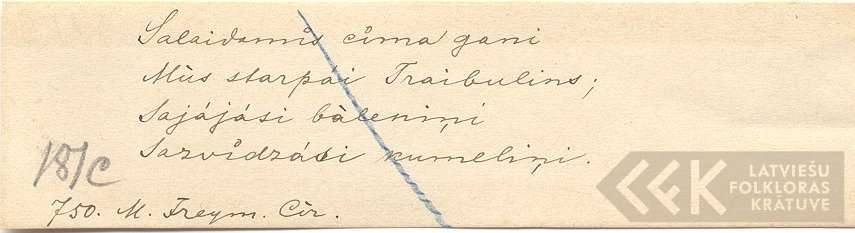 Salaidamìs cìma gani
Mùs starpái Traibulins;
Sajájási bàleniņi
Sazvìdzási kumeliņi.
18/C
750. M. Freym. Cìr.
LATVIEŠU
FOLKLORAS
KRĀTUVE